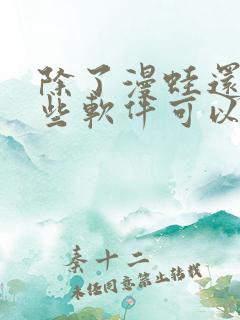 除了漫蛙還
些軟件可以
秦十二
未經同意禁止轉載